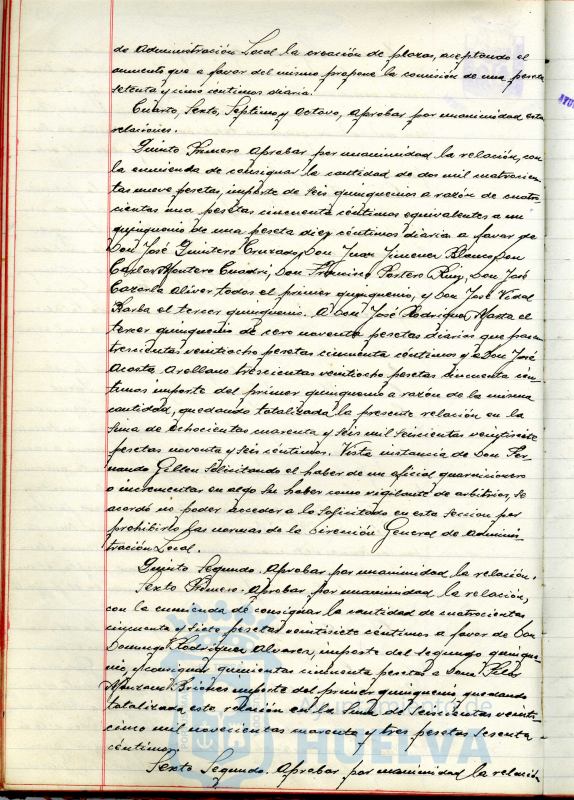 de Administración Local la creación de plazas, aceptando el
aumento que a favor del mismo propone la comisión de una peseta
setenta y cinco centimos diaria.
Cuarto, Sexto, Septimo y Octavo, Aprobar por unanimidad estas
relaciones.
Quinto Primero Aprobar por unanimidad la relación, con
la enmienda de consignar la cantidad de dos mil cuatrocien-
tas nueve pesetas, importe de seis quinquenios a razón de cuatro-
cientas una pesetas cincuenta céntimos equivalentes a un
quinquenio de una peseta diez céntimos diaria a favor de
Don José Quintero Cruzado, Don Juan Jimenez Blanco, Don
Carlos Montero Cuadri, Don Francisco Portero Ruiz, Don José
Cazorla Oliver todos el primer quinquenio, y Don José Vidal
Barba el tercer quinquenio. A Don José Rodriguez Masta el
tercer quinquenio de cero noventa pesetas diarias que hacen
trescientas veintiocho pesetas cincuenta céntimos y a Don José
Acosta Arellano trescientas veintiocho pesetas cincuenta cén-
timos importe del primer quinquenio a razón de la misma
cantidad, quedando totalizada la presente relación en la
suma de ochocientas cuarenta y seis mil seiscientas veintisiete
pesetas noventa y seis céntimos. Vista instancia de Don Fer-
nando Gullen solicitando el haber de un oficial guarnicionero
o incrementar en algo su haber como vigilante de arbitrios, se
acordó no poder acceder a lo solicitado en esta seccion por
prohibirlo las normas de la Dirección General de Adminis-
tración Local.
Quinto Segundo. Aprobar por unanimidad la relación.
Sexto Primero. Aprobar por unanimidad la relación,
con la enmienda de consignar la cantidad de cuatrocientas
cincuenta y siete pesetas veintisiete céntimos a favor de Don
Domingo Rodriguez Alvarez, importe del segundo quinque-
nio, y consignar quinientas cincuenta pesetas a Doña Pilar
Manzano Briones importe del primer quinquenio, quedando
totalizada esta relación en la suma de Seiscientas veinti-
cinco mil novecientas cuarenta y tres pesetas sesenta
céntimos.
Sexto Segundo. Aprobar por unanimidad la relación
Ayuntamiento de
HUELVA